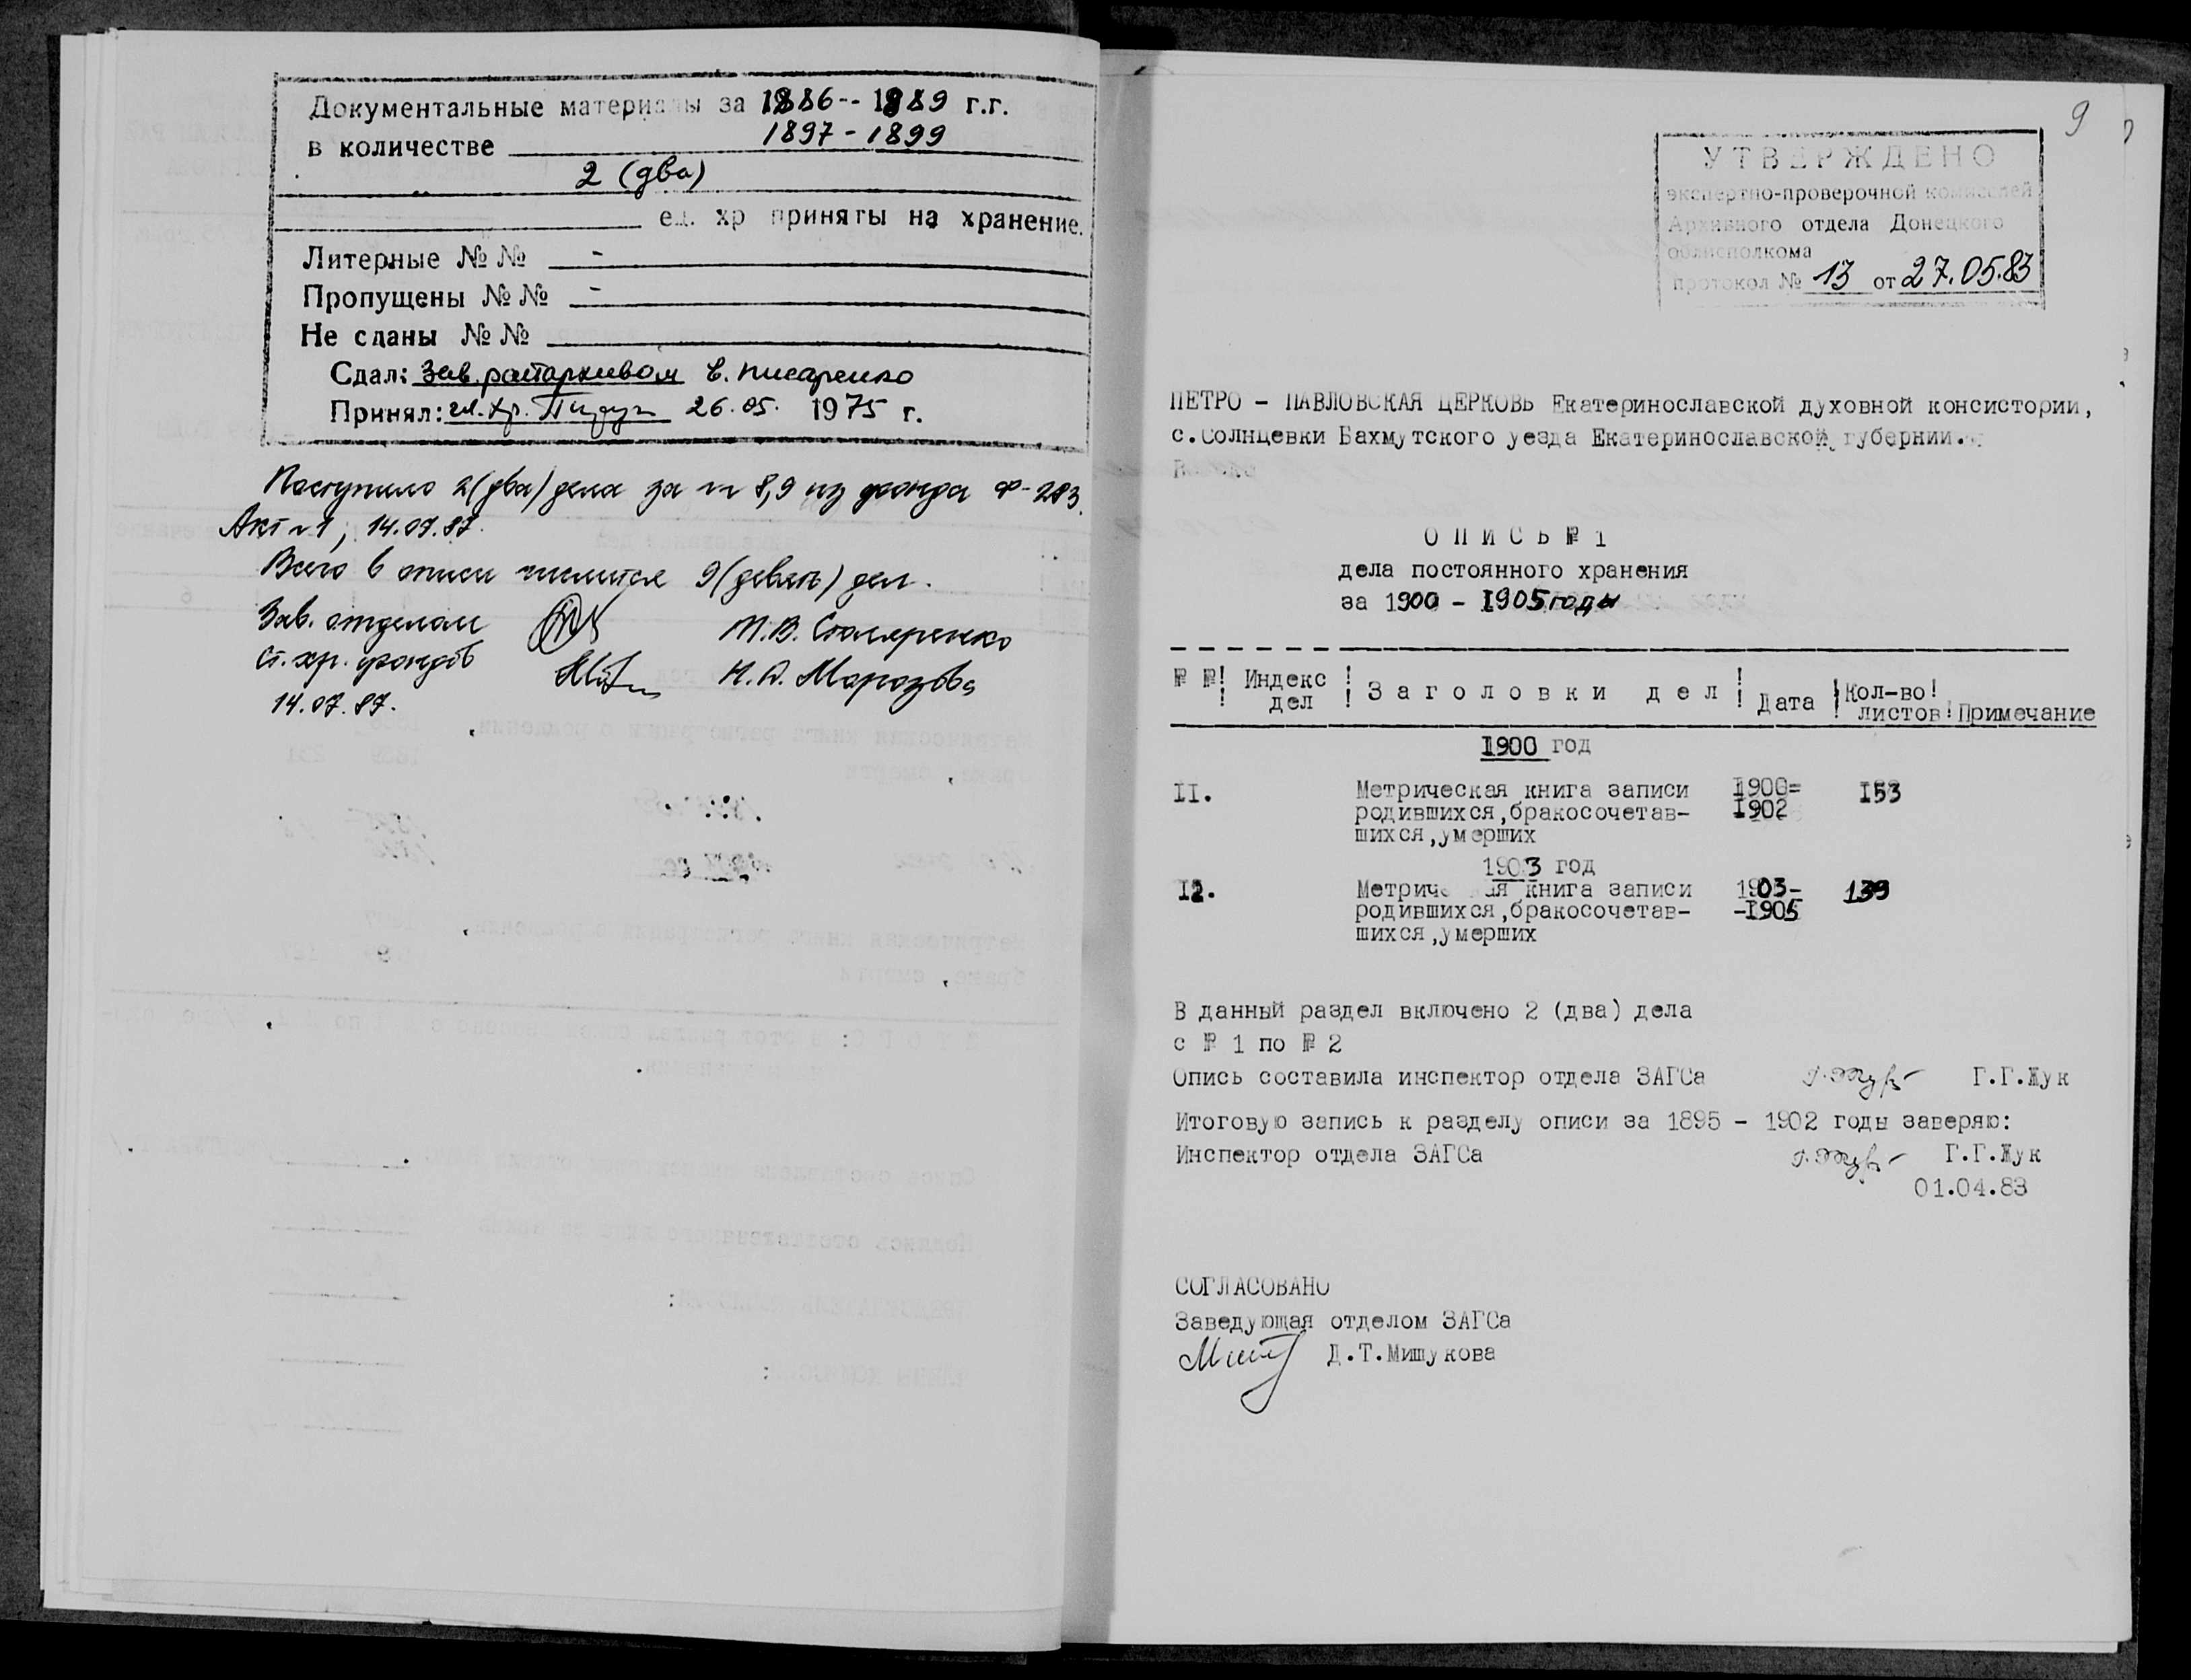 Документальные материалы за 1886-- 1889 г.г.
1897 - 1899
в количестве
2 (два)
ед. хр приняты на хранение.
Литерные №№ -
Пропущены №№ -
Не сданы №№
Сдал: Зав. райархивом Е. Писаренко
Принял: гл. хр. 26.05. 1975 г.
Поступило 2(два) дела за № 8,9 из фонда Ф-283.
Акт №1, 14.07.87.
Всего в описи числится 9(девять) дел.
Зав. отделом М.В. Столяренко
Ст. хр. фондов Н.А. Морозова
14.07.87.
9
УТВЕРЖДЕНО
экспертно-проверочной комиссией
Архивного отдела Донецкого
облисполкома
протокол № 13 от 27.05.83
ПЕТРО - ПАВЛОВСКАЯ ЦЕРКОВЬ Екатеринославской духовной консистории,
с.Солнцевки Бахмутского уезда Екатеринославской губернии.
О П И С Ь № 1
дела постоянного хранения
за 1900 - 1905 годы
№ №! Индекс дел ! З а г о л о в к и   д е л ! Дата !Кол-во листов! Примечание
1900 год
11. Метрическая книга записи 1900= 153
родившихся,бракосочетав- 1902
шихся,умерших
1903 год
12. Метрическая книга записи 1903- 139
родившихся,бракосочетав- -1905
шихся,умерших
В данный раздел включено 2 (два) дела
с № 1 по № 2
Опись составила инспектор отдела ЗАГСа Г.Г.Жук
Итоговую запись к разделу описи за 1895 - 1902 годы заверяю:
Инспектор отдела ЗАГСа Г.Г.Жук
01.04.83
СОГЛАСОВАНО
Заведующая отделом ЗАГСа
Д.Т.Мишукова